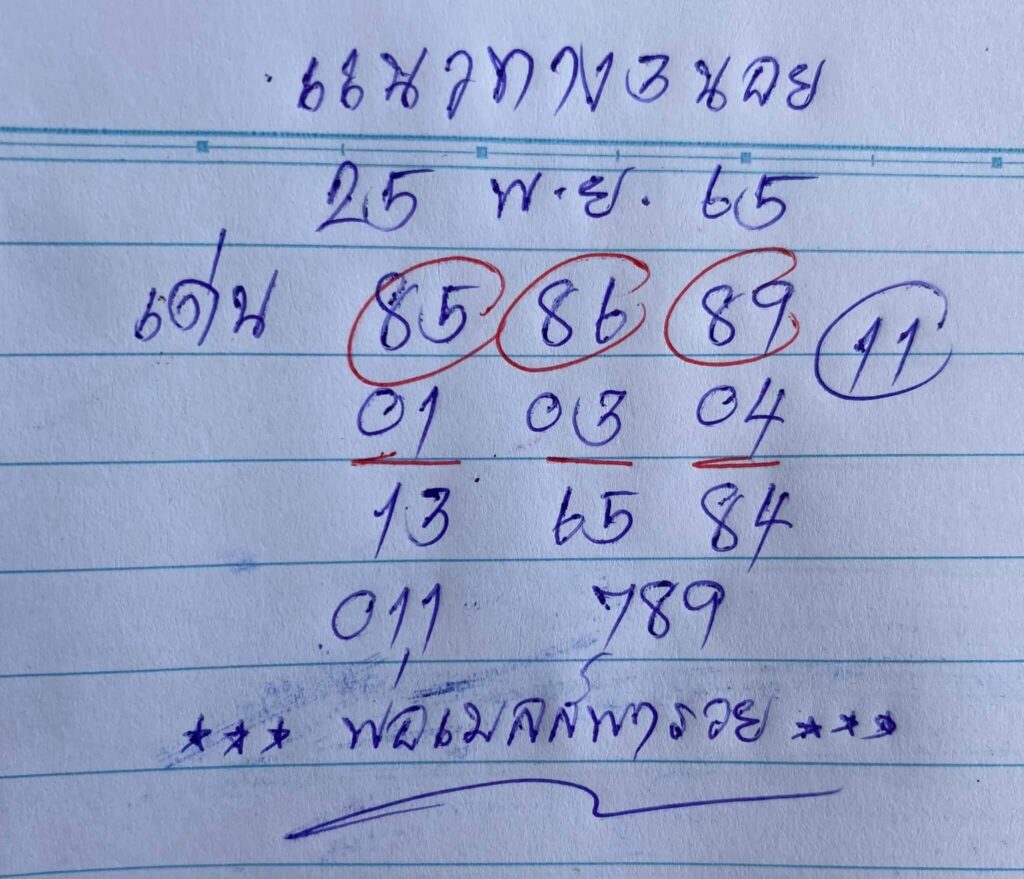 แนวทาง3นอย
25 พ.ย. 65
เด่น 85 86 89 11
01 03 04
13 65 84
011 789
*** พ่อเมลส์พารวย ***